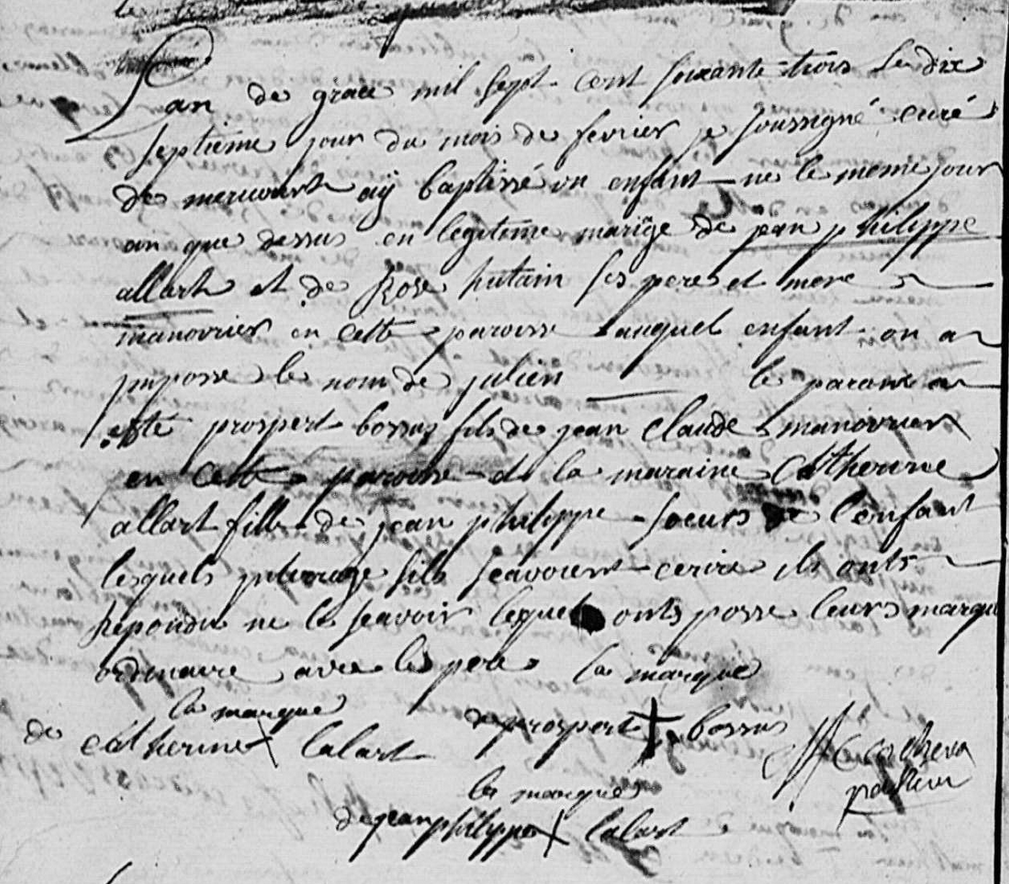 Lan de grace mil sept cent soixante trois le dix
septieme jour du mois de fevrier je soussigné curé
de mericourt aÿ baptissé un enfant ne le meme jour
an que dessus en legitime mariage de jean philippe
allart et de Rose hutain ses pere et mere
manovrier en cette paroisse auquel enfant on a
imposse le nom de julien le parain a
esté prospert bossus fils de jean claude manovrier
en cette paroisse et la maraine Catherine
allart fille de jean philippe soeurs de l'enfant
lesquels interroge sils scavoient ecrire ils onts
repondu ne le scavoir lequel onts posse leurs marque
ordinaire avec le pere la marque
la marque de prospert bossus
de Catherine lalart
pasteur
la marque
de jean philippe lalart